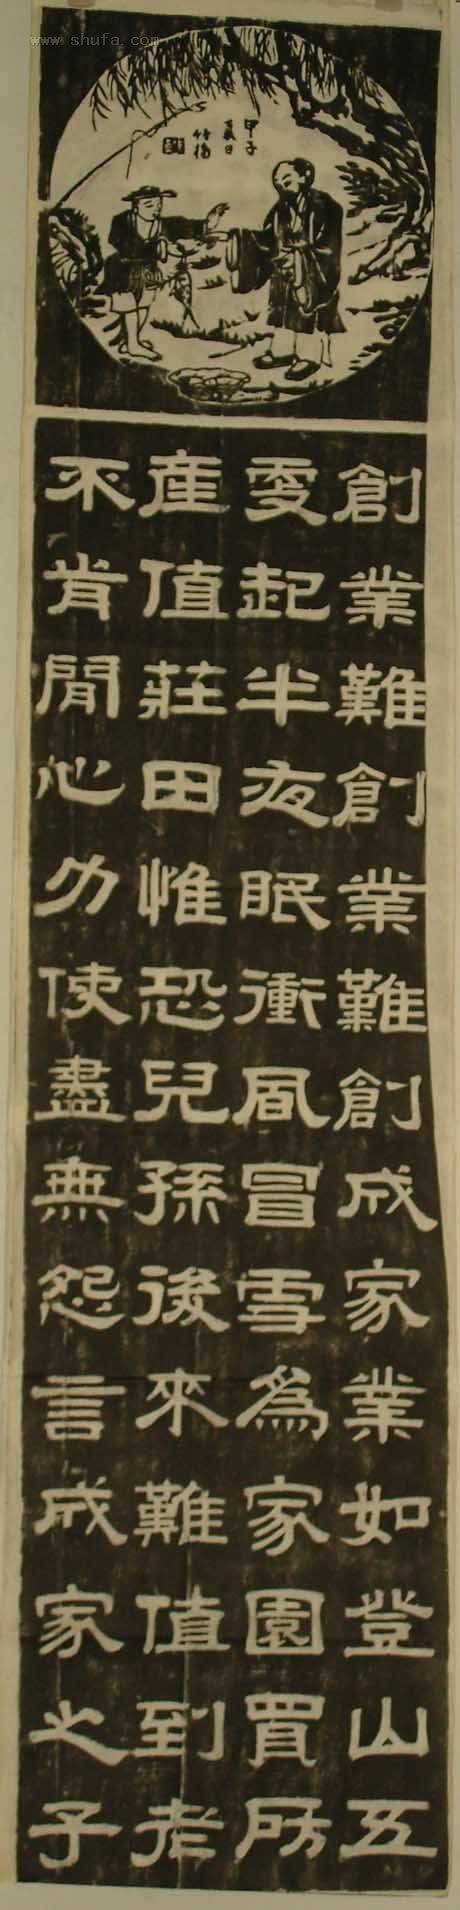 www.shufa.com
甲子
夏日
創業難創業難創成家業如登山五
更起半夜眠衝風冒雪爲家園買房
産值莊田惟恐兒孫後來難值到老
不肯閒心力使盡無怨言成家之子